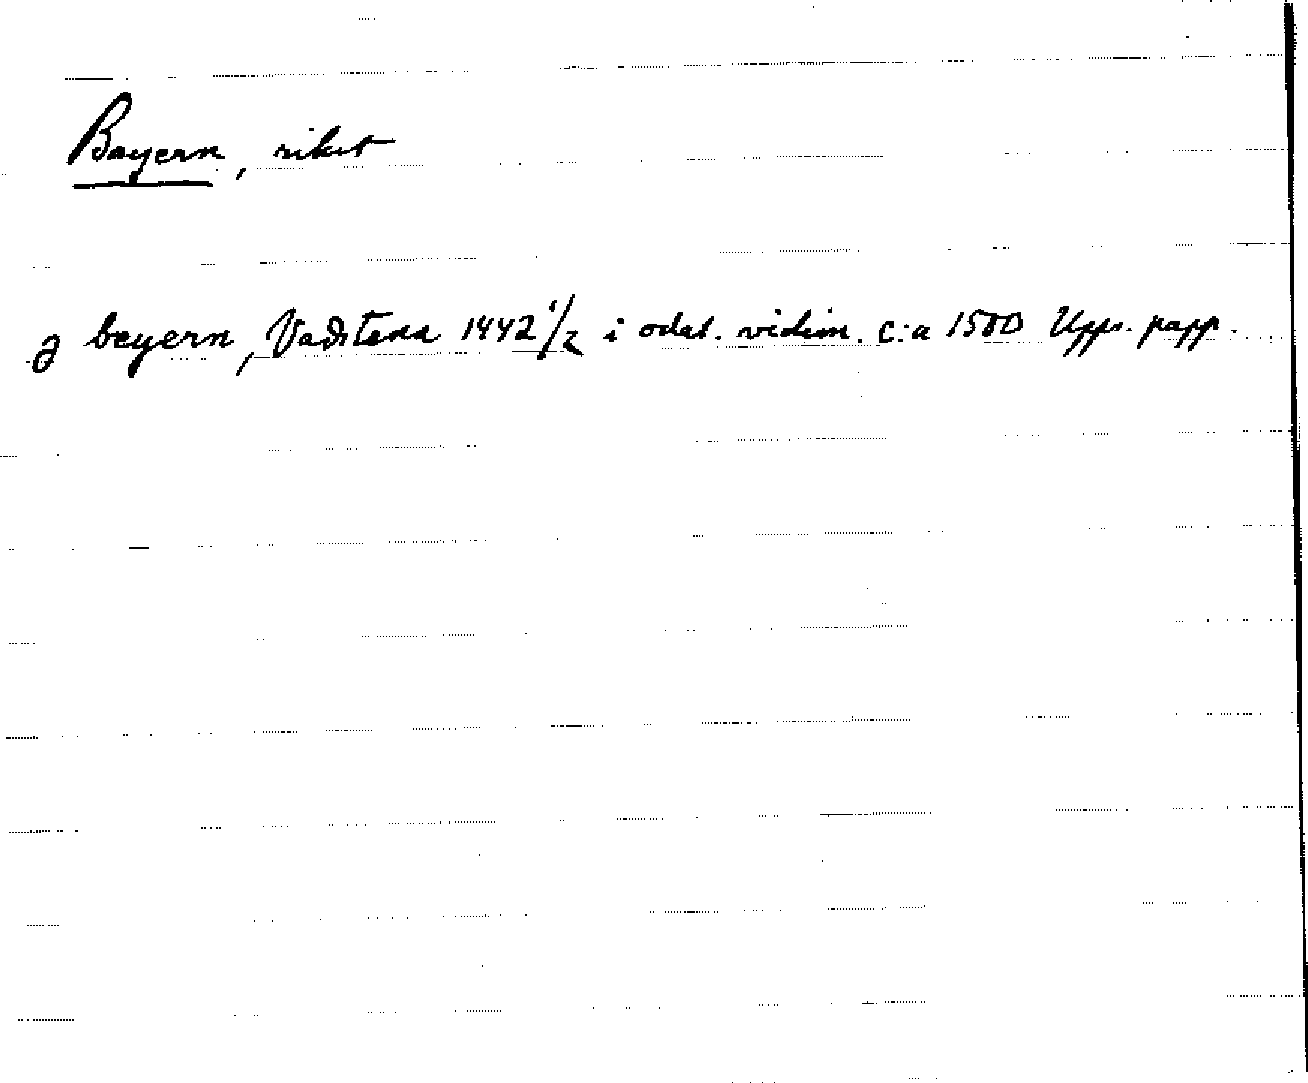 Bayern, riket
J beyern, Vadstena 1442 1/2 i odat. vidim. c:a 1500 Upps. papp.